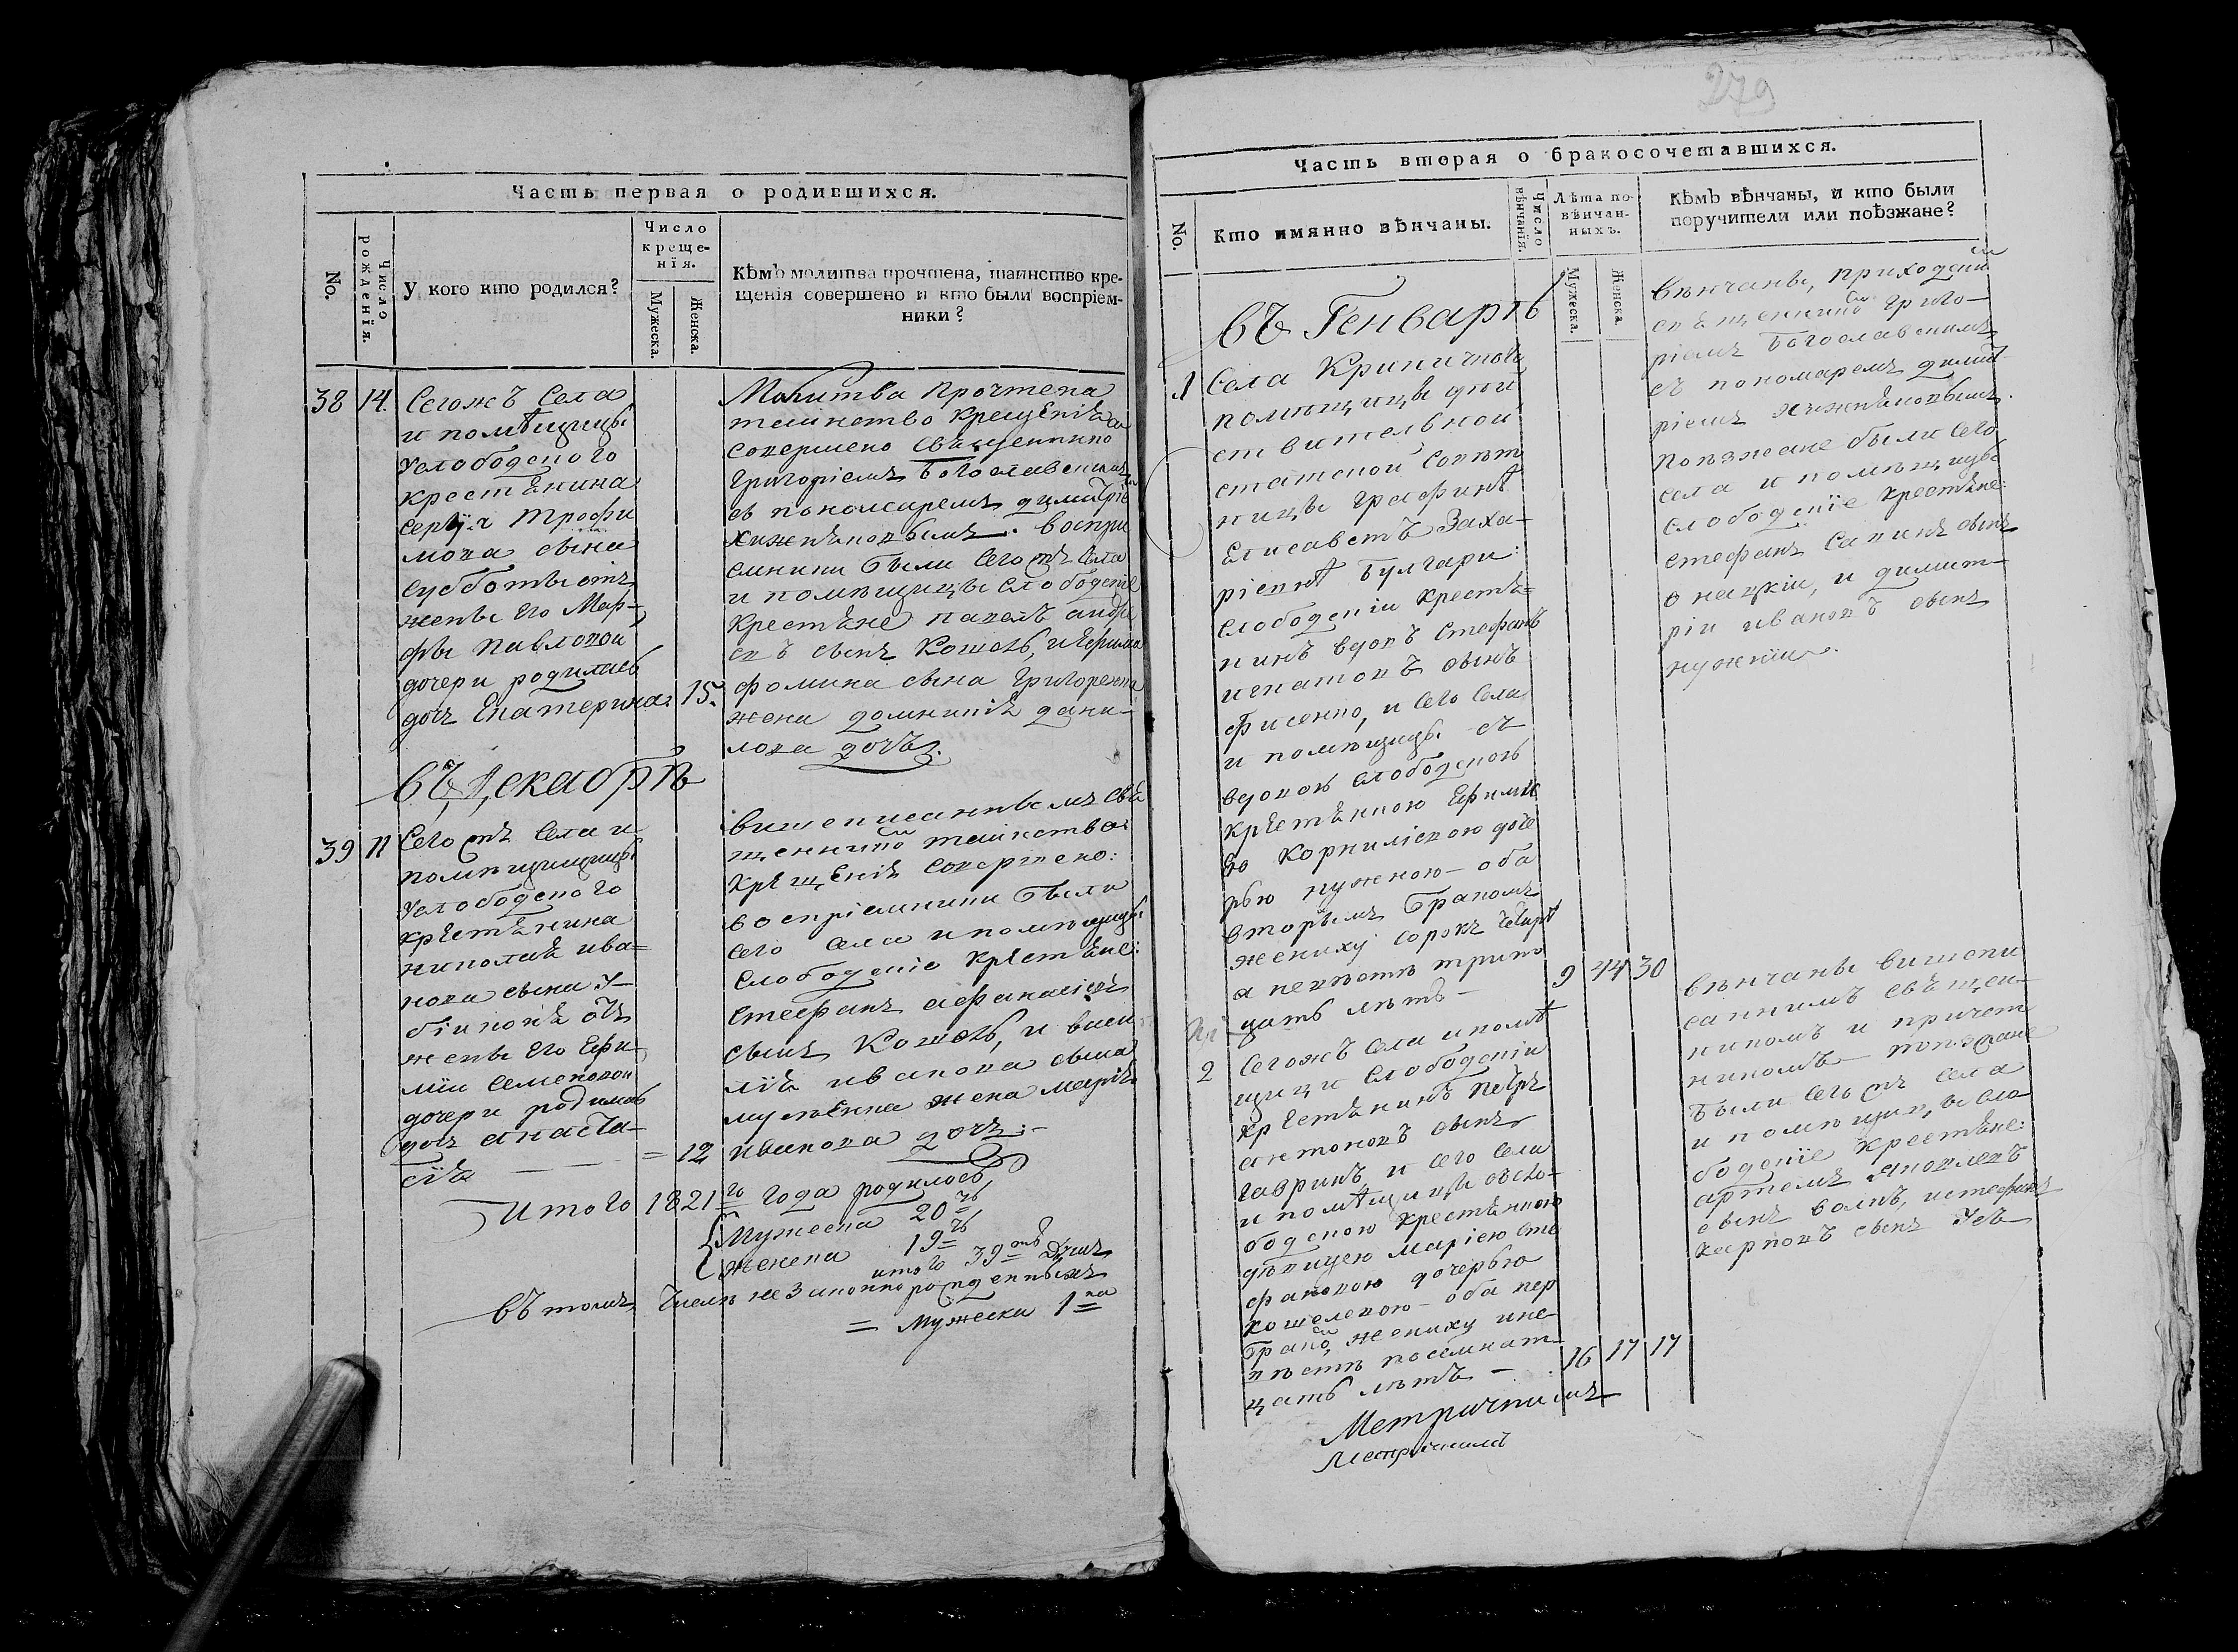 Часть первая о родившихся.
No.
Число рожденїя.
У кого кто родился?
Число креще-
нїя.
Мужеска.
Женска.
Кѣмъ молитва прочтена, таинство кре-
щенія совершено и кто были воспріем-
ники?
38 14. Сегожъ села
и помѣщицы
услободского
крестянина
Сергѣя Трофи
мова сына
Субботы отъ
жены его Мар-
фы Павловой
дочери родилась
дочь Екатерина: 15.
Молитва прочтена
таинство крещенія
совершено священнико
Григоріемъ Богославскимъ
съ пономаремъ Димитріе
Хижняковымъ. воспри
емники были сегожъ села
и помѣщицы слободскіе
крестяне Павелъ андре
евъ сынъ Кошель, и Ефима
Фомина сына Григоренка
жена Домникія дани-
лова дочь.
Въ Декабрѣ
39 11 Сегожъ села и
помѣщицы
услободского
крестянина
николая ива-
нова сына У-
отъ
жены его Ефи-
міи Семеновой
дочери родилась
дочь анаста-
сія = 12
вишеписаннымъ свя
щеннико таинство
крещенія совершено:
воспріемники были
сего села и помѣщицы
слободскіе крестяне:
стефанъ афанасіевъ
сынъ Кошель, и васи
лія иванова сына
жена марія
иванова дочь.
Итого 1821 го года родилось
Мужеска 20
Женска 19
итого 39 душъ
Въ томъ числѣ не законно рожденныхъ
= Мужеска 1
279
Часть вторая о бракосочетавшихся.
No.
Кто имянно вѣнчаны.
Число вѣнчанїя.
Лѣта по-
вѣнчан-
ныхъ.
Мужеска.
Женска.
Кѣмъ вѣнчаны, и кто были
поручители или поѣзжане?
Въ Генварѣ
1 Села Криничного
помѣщицы дѣй
ствительной
статской совѣт
ницы графинѣ
Елисаветѣ Заха-
ріевнѣ Булгари:
слободскіи крестя-
нинъ вдовъ Стефанъ
игнатовъ сынъ
фисенко, и сего села
и помѣщицы съ
вдовою слободскою
крестянкою Ефимі
ею Корниліевою доче
рью нужною оба
вторымъ бракомъ
жениху сорокъ четирѣ
а невѣстѣ трит
цать лѣтъ - 9 44 30
вѣнчаны, приходски
священнико григо-
ріемъ Богославскимъ
съ пономаремъ димит
ріемъ хижняковымъ.
поѣзжане были сего
села и помѣщицы
слободскіе крестяне:
стефанъ Савинъ сынъ
онацкіи, и димит-
ріи ивановъ сынъ
нужніи.
2 Сегожъ села и помѣ
щици слободскіи
крестянинъ петръ
антоновъ сынъ
Гавришъ и сего села
и помѣщици съ сло-
бодскою крестянкою
дѣвицею Маріею сте
фановою дочерью
кошелевою - оба пер
брако, жениху и не-
вѣстѣ посемнат-
цать лѣтъ - 16 17 17
вѣнчаны вишепи
саннимъ священ-
никомъ и причет
никомъ поѣзжане
были сегожъ села
и помѣщицы сло
бодскіе крестяне:
артемъ яковлевъ
сынъ волкъ, и стефанъ
карповъ сынъ